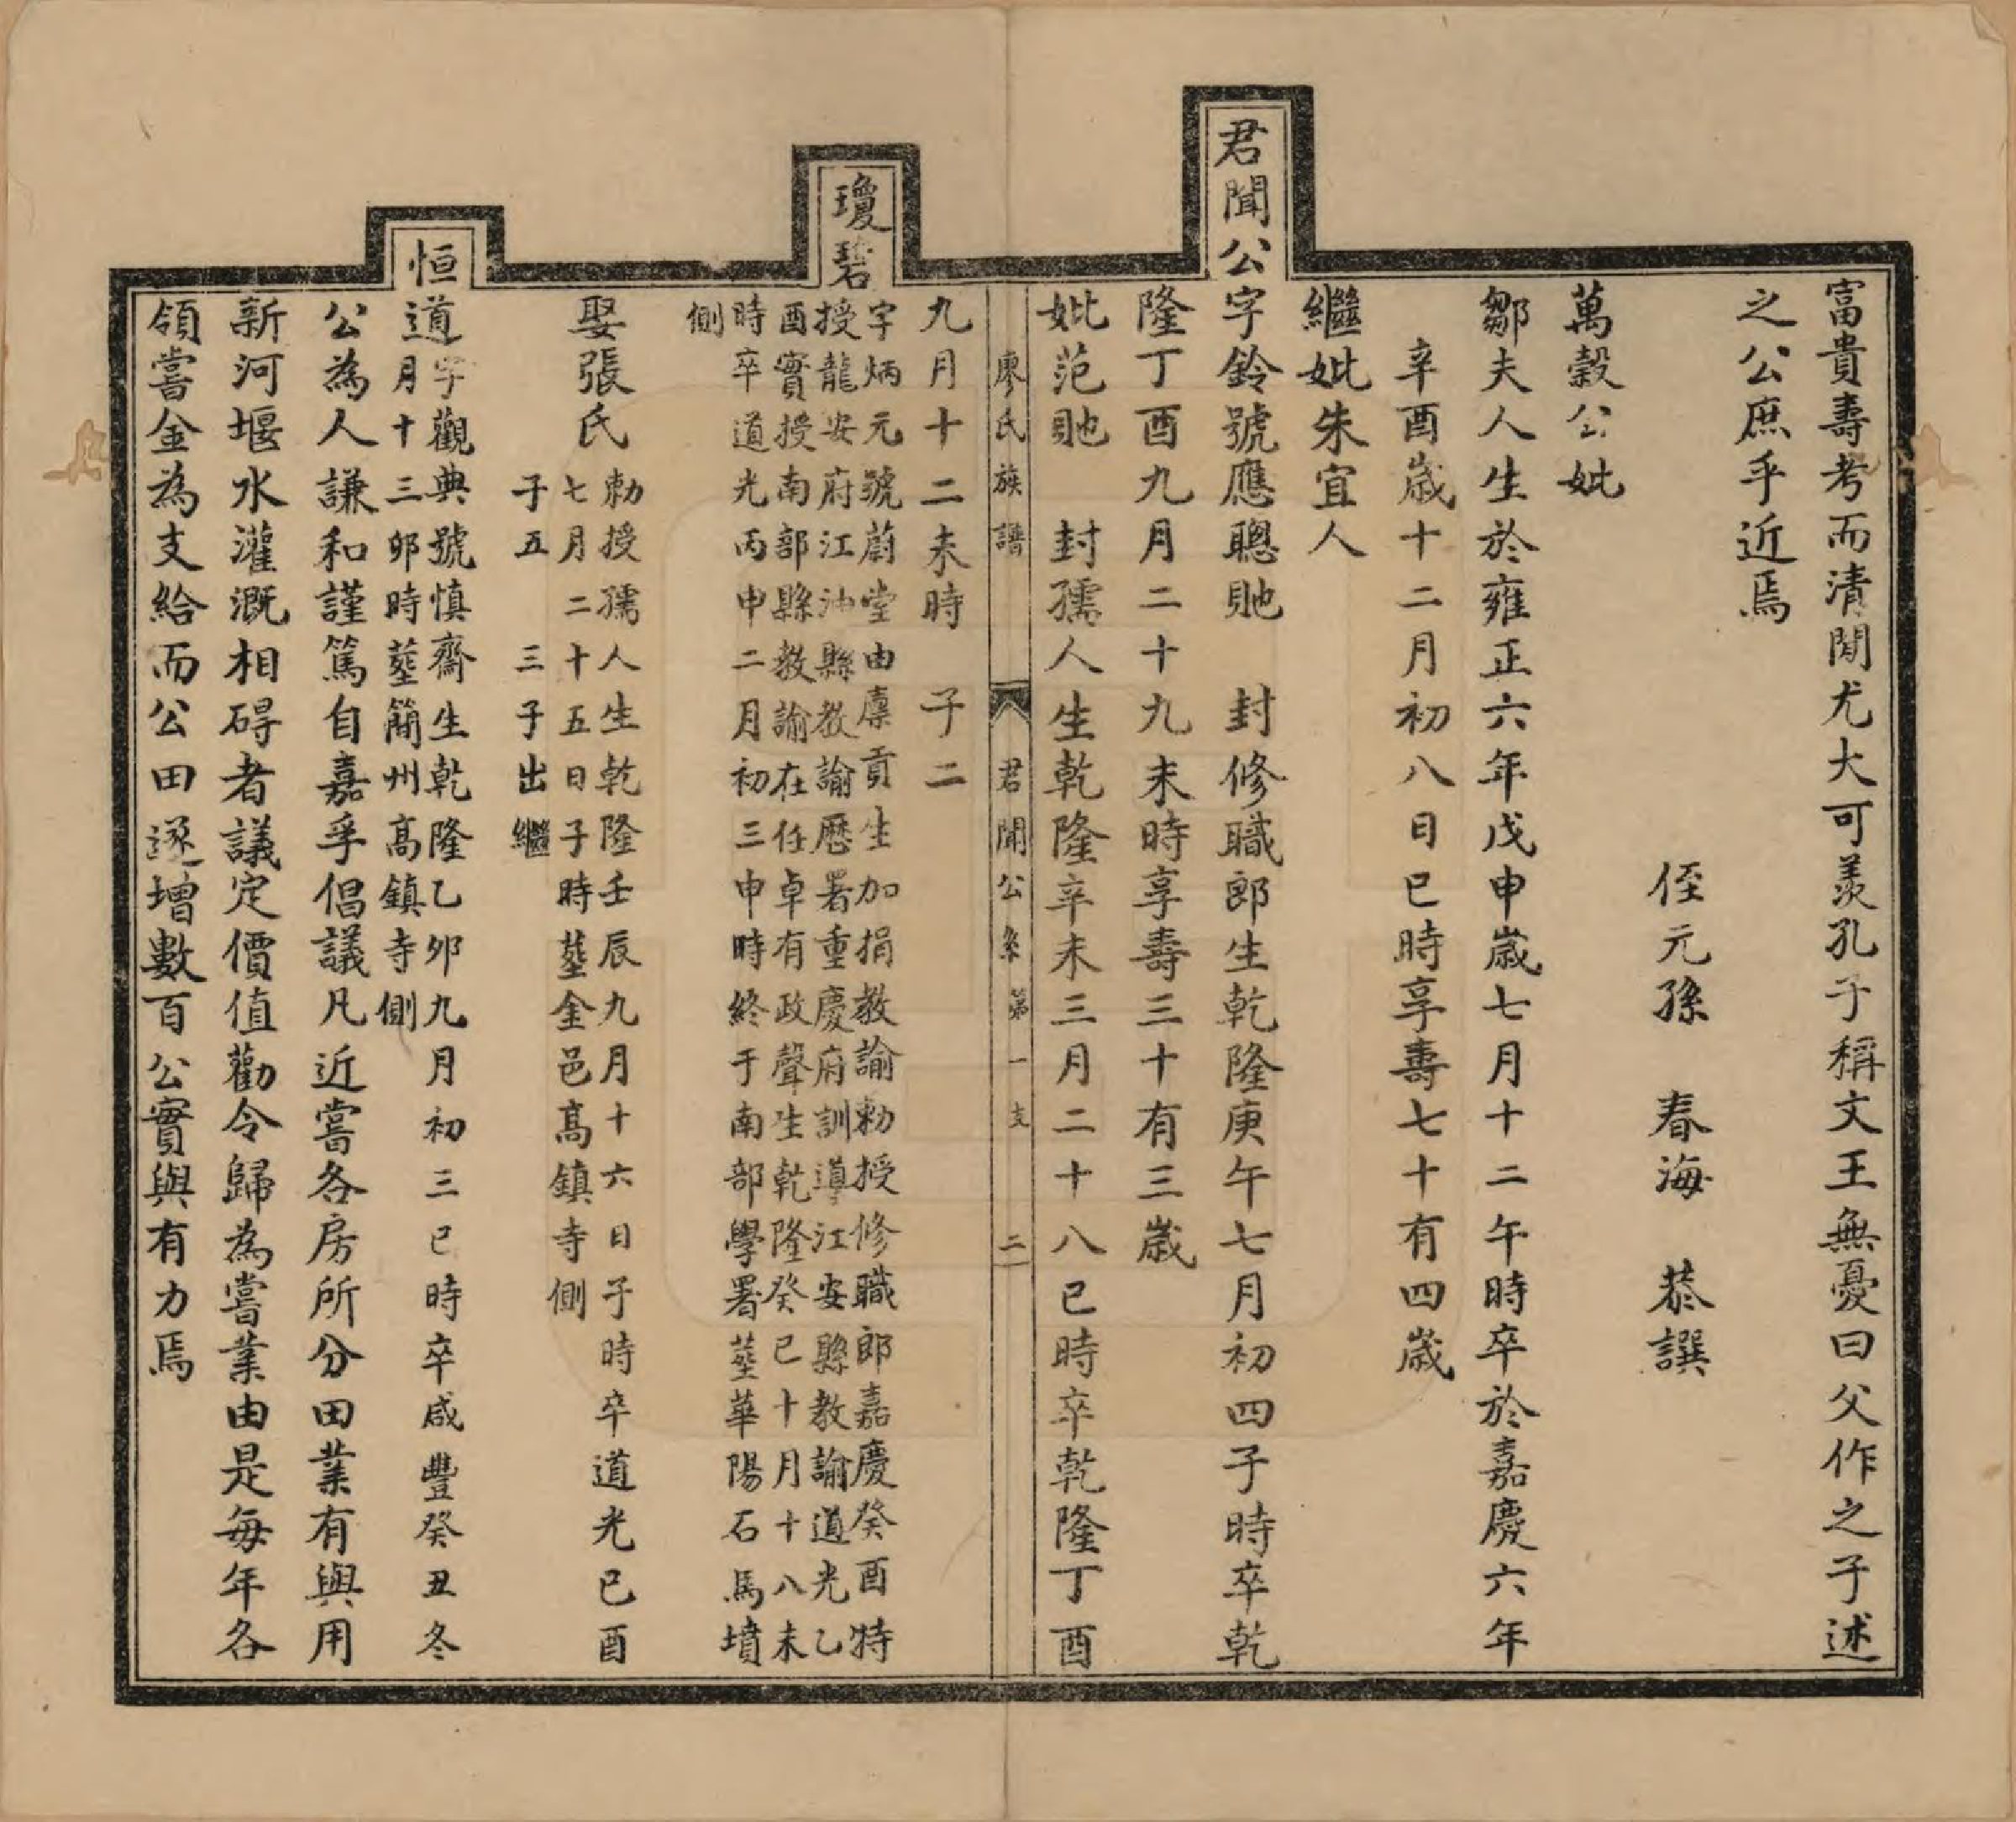 富貴壽考而清閒尤大可羨孔子稱文王無憂曰父作之子述
之公庶乎近焉
侄元孫　春海　恭譔
萬穀公妣
鄒夫人生於雍正六年戊申歲七月十二午時卒於嘉慶六年
辛酉歲十二月初八日巳時享壽七十有四歲
繼妣朱宜人
君聞公字鈴號應聰貤　封修職郎生乾隆庚午七月初四子時卒乾
隆丁酉九月二十九未時享壽三十有三歲
妣范貤　封孺人生乾隆辛未三月二十八巳時卒乾隆丁酉
廖氏族譜　君聞公系第一支　二
九月十二未時　子二
瓊碧字炳元號蔚堂由廩貢生加捐教諭勅授修職郎嘉慶癸酉特
授龍安府江油縣教諭歷署重慶府訓導江安縣教諭道光乙
酉實授南部縣教諭在任卓有政聲生乾隆癸巳十月十八未
時卒道光丙申二月初三申時終于南部學署塟華陽石馬墳
側
娶張氏勅授孺人生乾隆壬辰九月十六日子時卒道光己酉
七月二十五日子時塟金邑高鎮寺側
子五　三子出繼
恒道字觀典號慎齋生乾隆乙卯九月初三巳時卒咸豐癸丑冬
月十三卯時塟簡州高鎮寺側
公為人謙和謹篤自嘉孚倡議凡近嘗各房所分田業有與用
新河堰水灌溉相碍者議定價值勸令歸為嘗業由是每年各
領嘗金為支給而公田遂增數百公實與有力焉